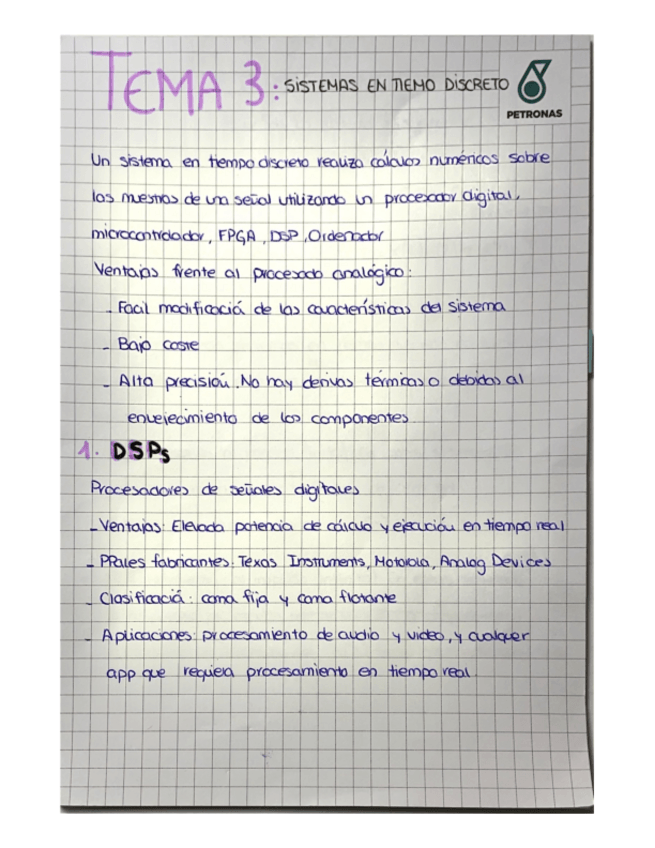 TEMA 3: SISTEMAS EN TIEMO DISCRETO
PETRONAS
Un sistema en tiempo discreto realiza cálculos numéricos sobre
las muestras de una señal utilizando un procesador digital,
microcontrolador, FPGA, DSP, Ordenador
Ventajas frente al procesado analógico:
- Facil modificació de las características del sistema
- Bajo coste
- Alta precisión. No hay derivas térmicas o debidas al
envejecimiento de los componentes
1. DSPs
Procesadores de señales digitales
- Ventajas: Elevada potencia de cálculo y ejecución en tiempo real
- PRales fabricantes: Texas Instruments, Motorola, Analog Devices
- Clasificació: coma fija y coma flotante
- Aplicaciones: procesamiento de audio y video, y cualquer
app que requiera procesamiento en tiempo real.